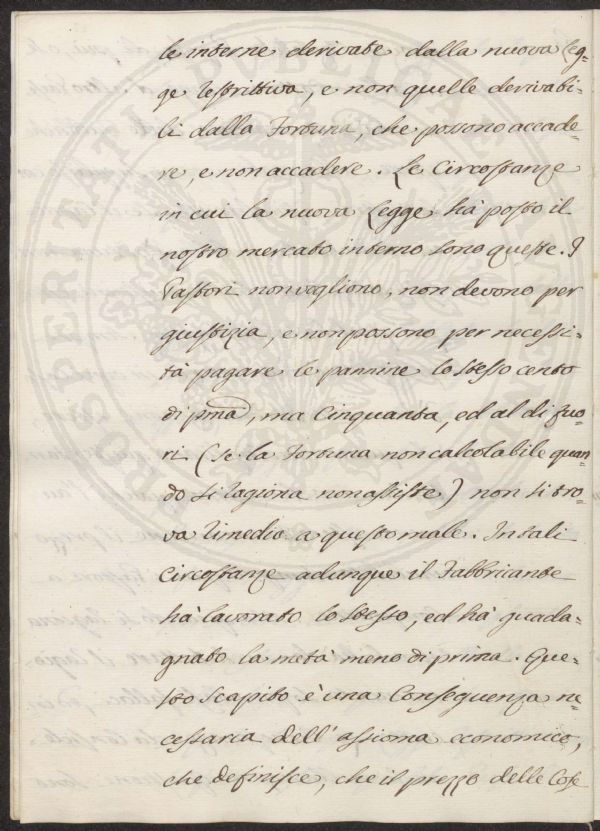 le interne derivate dalla nuova Leg-
ge restrittiva, e non quelle derivabi-
li dalla Fortuna, che possono accade-
re, e non accadere. Le Circostanze
in cui la nuova Legge hà posto il
nostro mercato interno sono queste. I
Pastori non vogliono, non devono per
giustizia, e non possono per necessi-
tà pagare le pannine lo stesso cento
di pma, ma Cinquanta, ed al di fuo-
ri (se la Fortuna non calcolabile quan-
do si ragiona non assiste) non si tro-
va rimedio a questo male. In tali
Circostanze adunque il Fabbricante
hà lavorato lo stesso, ed hà guada-
gnato la metà meno di prima. Que-
sto scapito è una Conseguenza ne-
cessaria dell'assioma economico,
che definisce, che il prezzo delle Cose
PROSPERITATI PUBLICAE